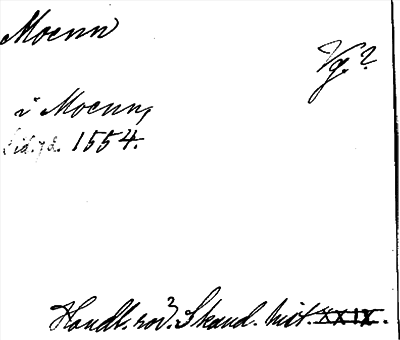 Moenn
Vg.?
i Moenn,
Sid. 72. 1554.
Handl. rör. Skand. hist. XXIX.